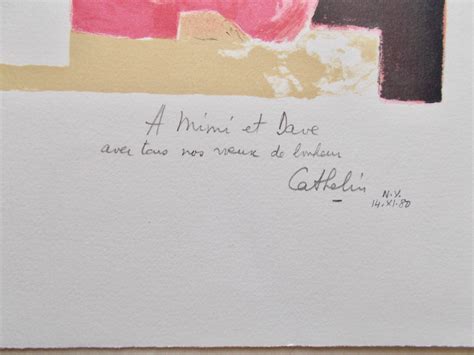 A Mimi et Dave
avec tous nos vœux de bonheur
Cathelin
N.Y.
14.XI.80